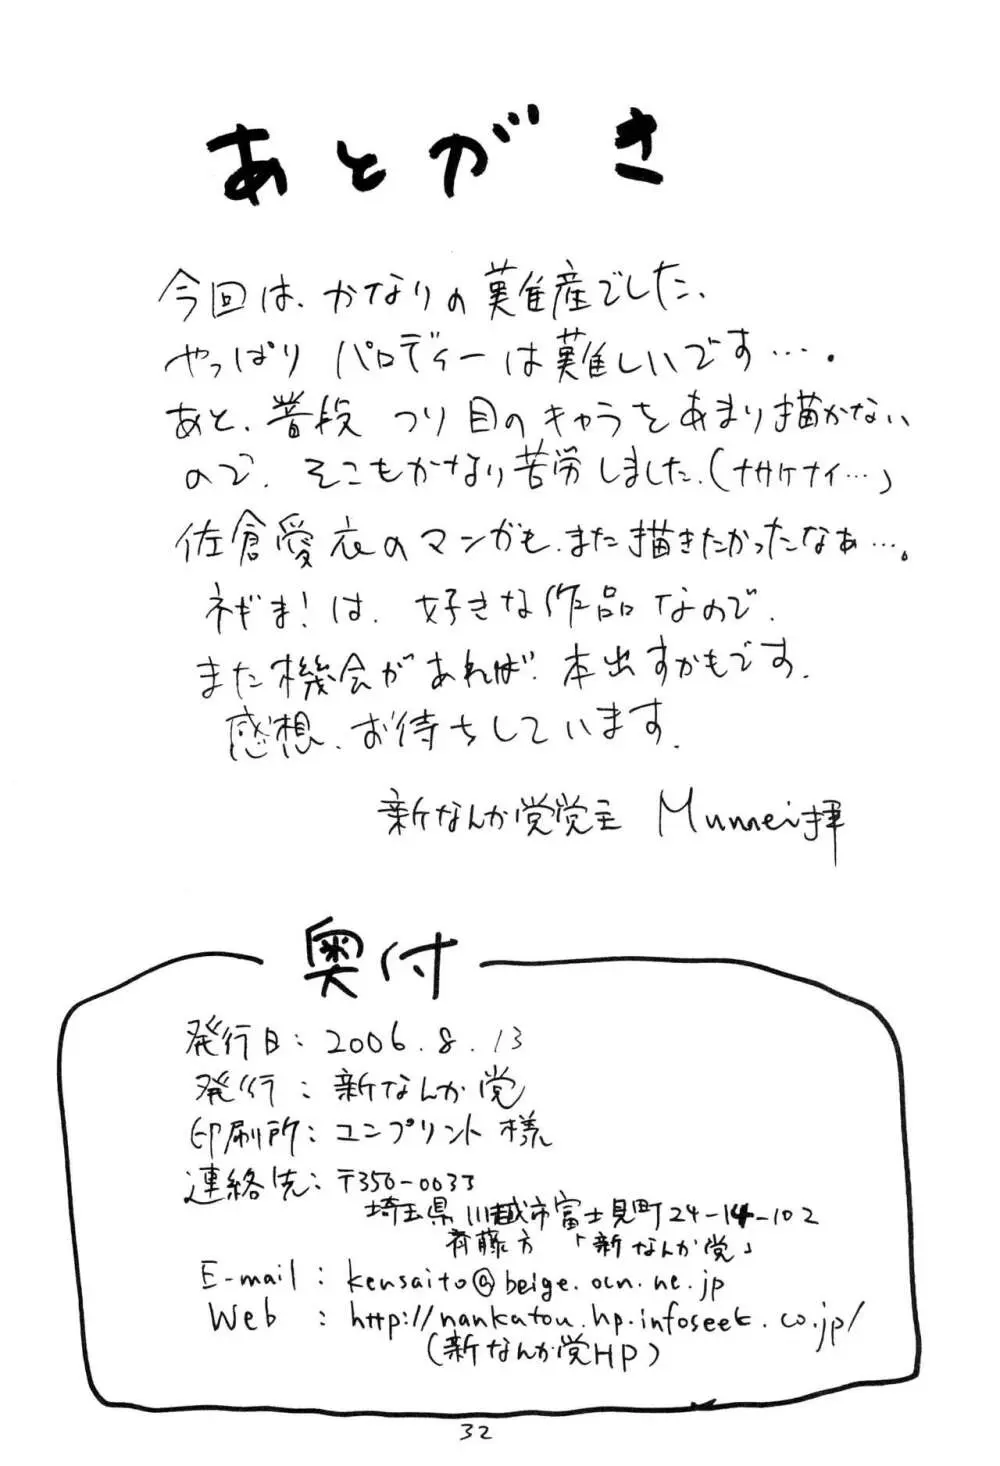 あとがき
今回は、かなりの難産でした、
やっぱりパロディーは難しいです…．
あと、普段つり目のキャラをあまり描かない
ので、そこもかなり苦労しました、(ナサケナイ…」
佐倉愛衣のマンガも、また描きたかったなぁ…。
ネギま！は、好きな作品なので、
また機会があれば、本出すかもです、
感想、お待ちしています、
新なんか党党主 Munnei拝
奥付
発行日：2006.8.13
発行：新なんか党
印刷所：コンプリント様
連絡先：〒350-0033
埼玉県川越市富士見町24-14-102
斉藤方「新なんか党」
E-mail：kensaito@beige.ocn.ne.jp
Web：http://nankatou.hp.infoseek.co.jp/
(新なんか党HP)
32